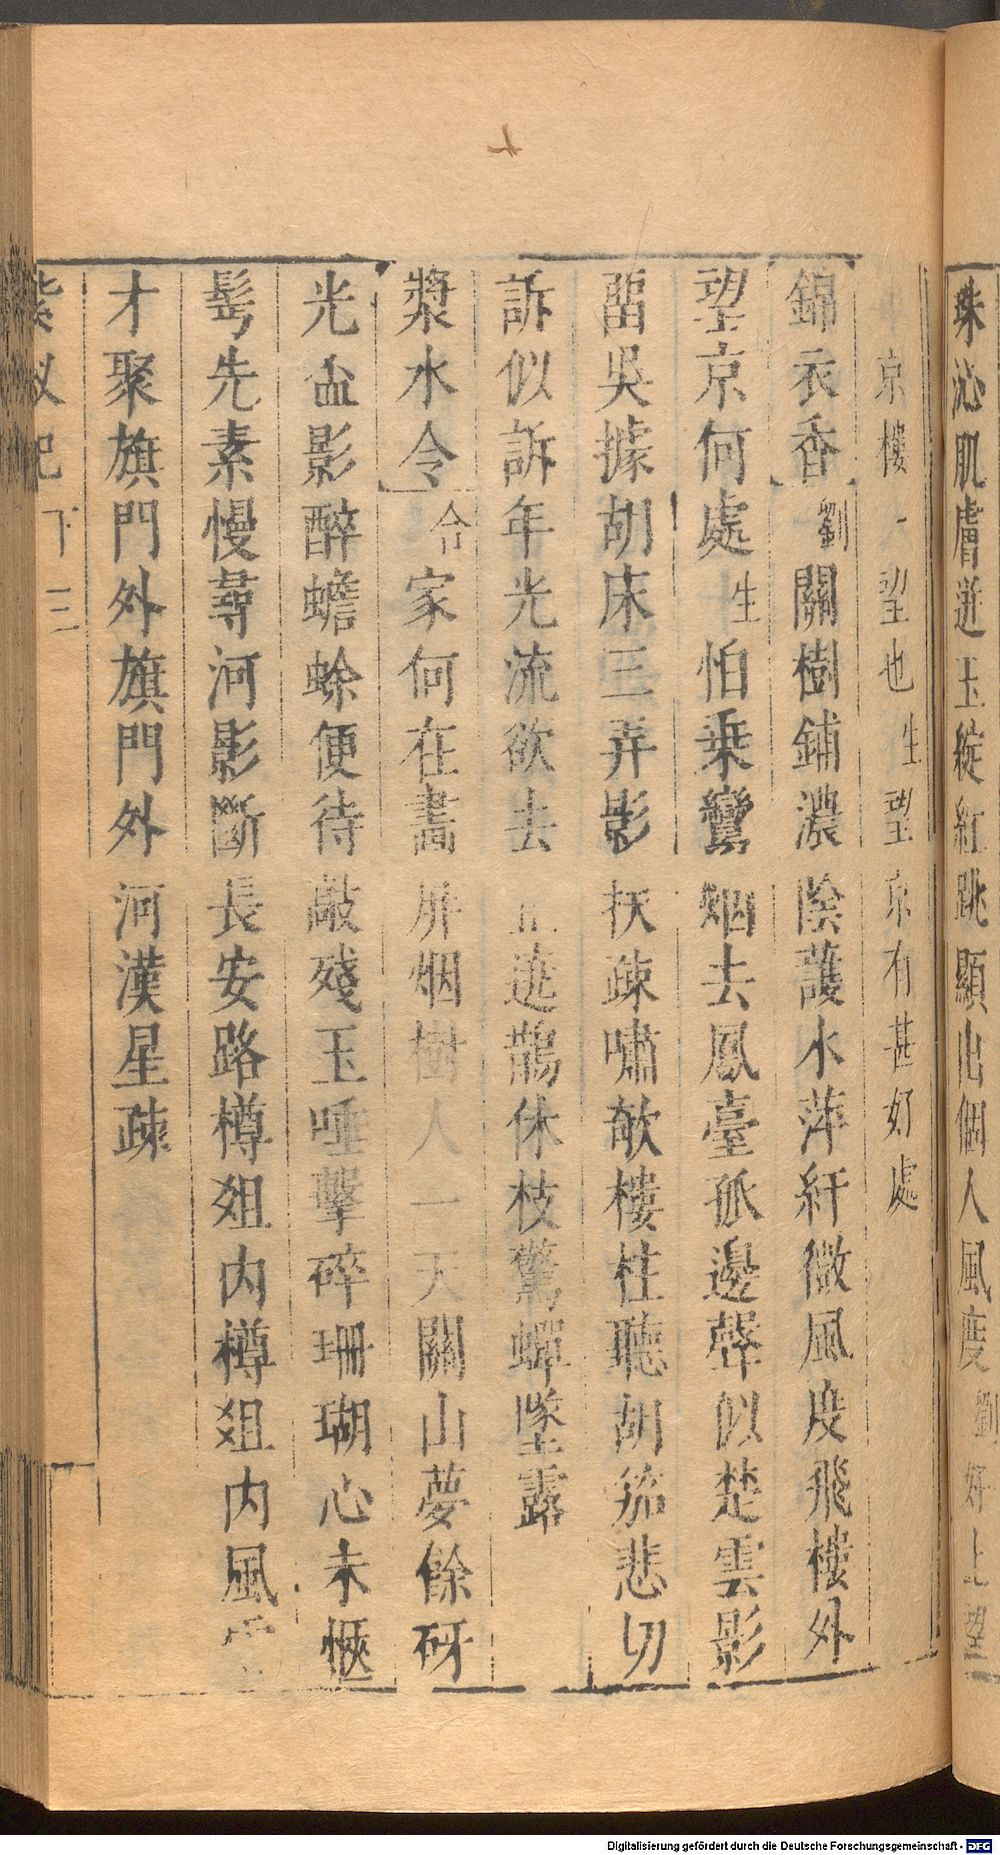 珠沁肌膚逬玉綻紅跳顯出個人風度劉好上望
京樓一望也生望京有甚好處
錦衣香劉關樹鋪濃陰護水萍紆微風度飛樓外
望京何處生怕乗鸞烟去鳳臺孤邊聲似楚雲影
畱吳據胡床三弄影扶疎嘯欹樓柱聽胡笳悲切
訴似訴年光流欲去遶鵲休枝驚蟬墜露
漿水令合家何在畵屏烟樹人一天關山夢餘砑
光盃影醉蟾蜍便待敲殘玉唾擊碎珊瑚心未愜
髩先素慢尋河影斷長安路樽俎内樽俎内風雲
才聚旗門外旗門外河漢星疎
紫釵記下三
Digitalisierung gefördert durch die Deutsche Forschungsgemeinschaft - DFG